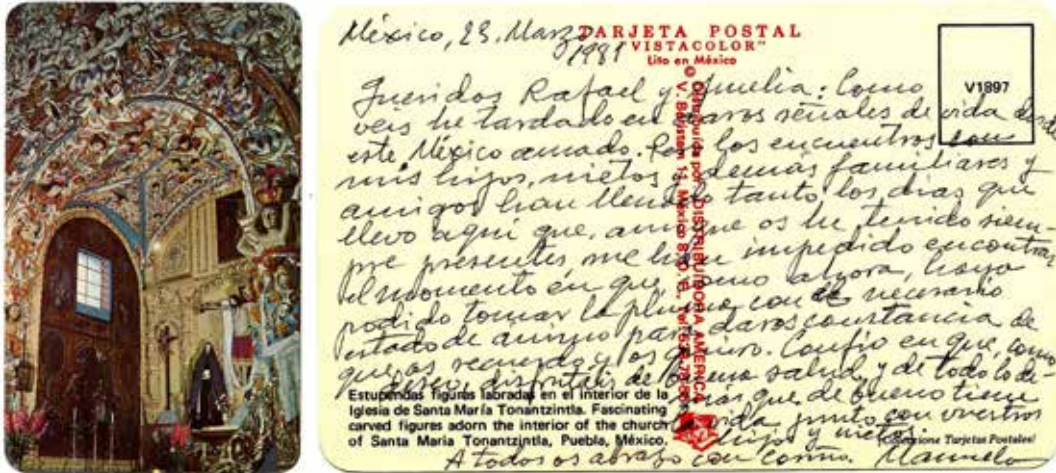 México, 23. Marzo
1981
TARJETA POSTAL
"VISTACOLOR"
Lito en México
V1897
Queridos Rafael y Amelia: Como
veis he tardado en daros señales de vida desde
este México amado. Pero los encuentros con
mis hijos, nietos y demás familiares y
amigos han llenado tanto los días que
llevo aquí que, aunque os he tenido siem-
pre presentes, me han impedido encontrar
el momento en que, como ahora, haya
podido tomar la pluma con el necesario
estado de ánimo para daros constancia de
que os recuerdo y os quiero. Confío en que, como
deseo, disfrutáis de buena salud y de todo lo de-
más que de bueno tiene
la vida junto con vuestros
hijos y nietos.
A todos os abrazo con cariño. Manuela
© Distribuido por: DISTRIBUIDORA AMERICA
V. 11, México 8, D. F. Tel.
Estupendas figuras labradas en el interior de la
Iglesia de Santa María Tonantzintla. Fascinating
carved figures adorn the interior of the church
of Santa Maria Tonantzintla, Puebla, México.
¡Coleccione Tarjetas Postales!